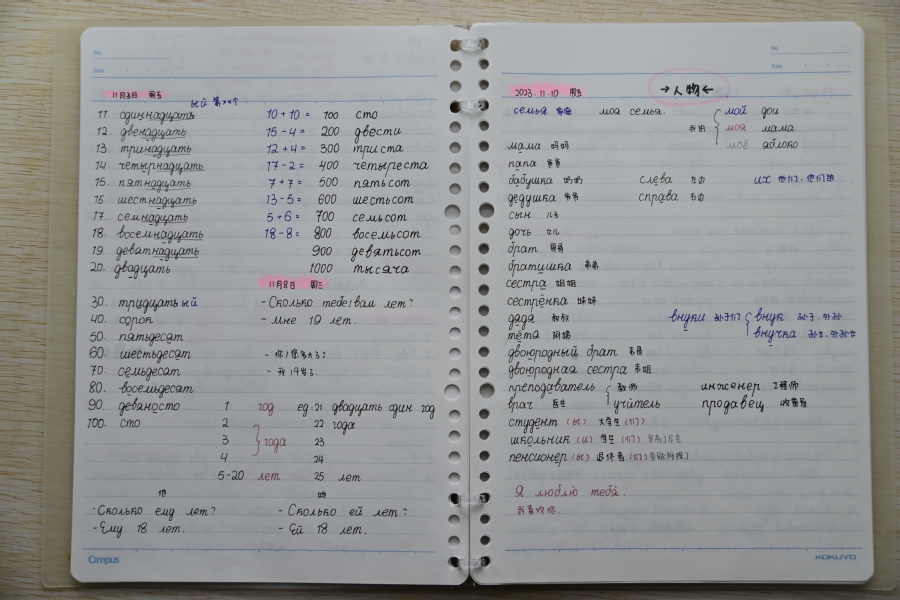 No.
Date
11月3日 周五
ый 第××个
11. одиннадцать 10+10= 100 сто
12. двенадцать 15-4= 200 двести
13. тринадцать 12+4= 300 триста
14. четырнадцать 17-2= 400 четыреста
15. пятнадцать 7+7= 500 пятьсот
16. шестнадцать 13-5= 600 шестьсот
17. семнадцать 5+6= 700 семьсот
18. восемнадцать 18-8= 800 восемьсот
19. девятнадцать 900 девятьсот
20. двадцать 1000 тысяча
11月8日 周三
30. тридцатьый - Сколько тебе/вам лет?
40. сорок - Мне 19 лет.
50. пятьдесят
60. шестьдесят - 你/您多大了?
70. семьдесят - 我19岁了.
80. восемьдесят
90. девяносто 1 год eg: 21 двадцать один год
100. сто 2 22 года
3 года 23
4 24
5-20 лет 25 лет
他 她
- Сколько ему лет? - Сколько ей лет?
- Ему 18 лет. - Ей 18 лет.
Campus
No.
Date
2023.11.10 周五 →人物←
семья 家庭 моя семья мой дом
我的 моя мама
моё яблоко
мама 妈妈
папа 爸爸
бабушка 奶奶 слева 左边 их 他们,他们的
дедушка 爷爷 справа 右边
сын 儿子
дочь 女儿
брат 哥哥
братишка 弟弟
сестра 姐姐
сестрёнка 妹妹
дядя 叔叔 внуки 孙子们 внук 孙子,外孙
тётя 阿姨 внучка 孙女,外孙女
двоюродный брат 表哥
двоюродная сестра 表姐
преподаватель 教师 инженер 工程师
врач 医生 учитель продавец 收费员
студент (ы) 大学生 (们)
школьник (и) 学生 (们)
пенсионер (ы) 退休者 (们)
Я люблю тебя.
我喜欢你.
KOKUYO